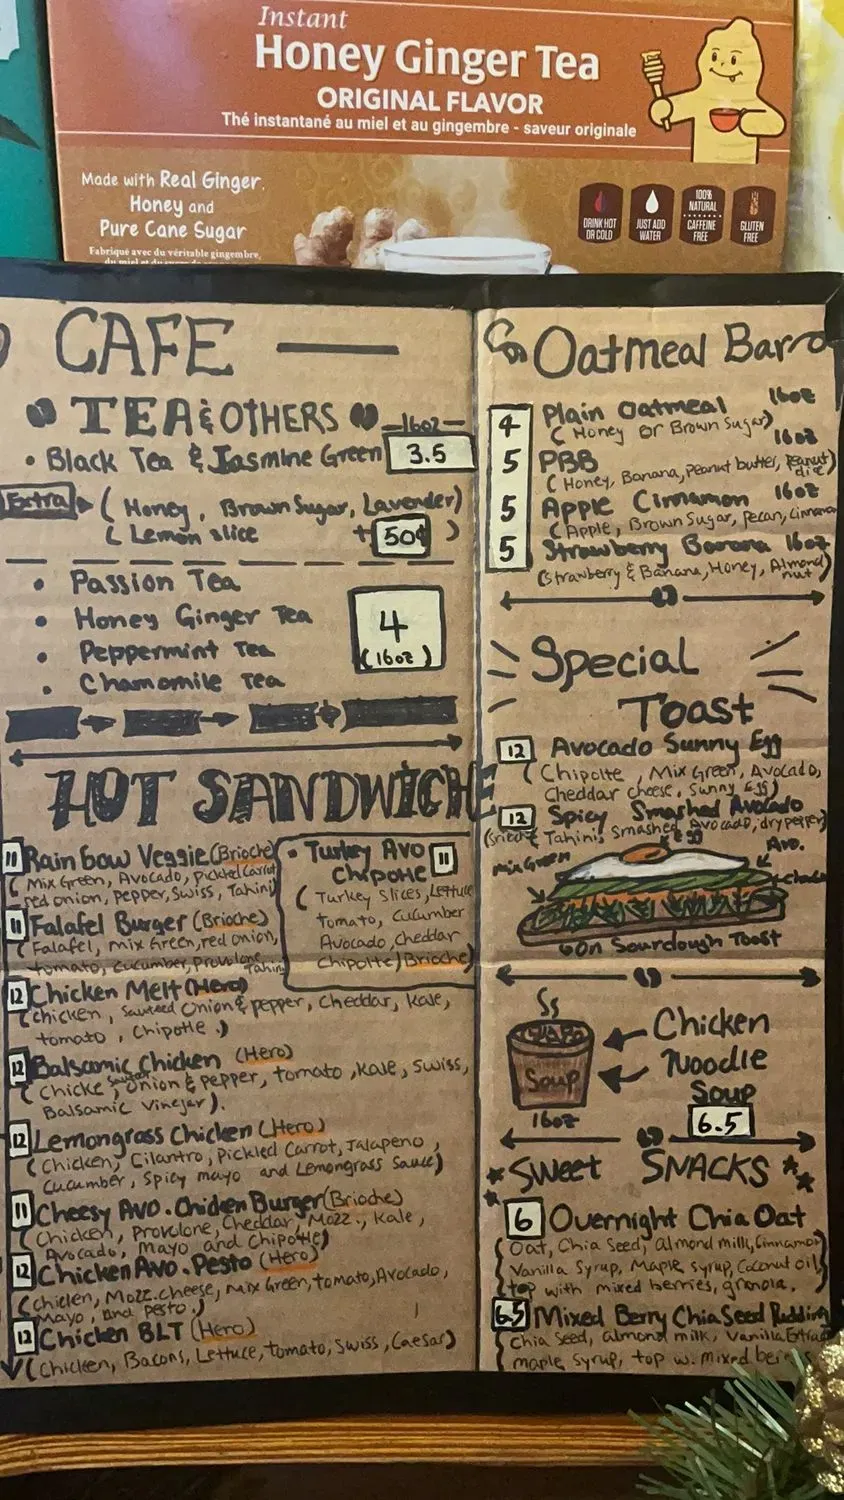 Instant
Honey Ginger Tea
ORIGINAL FLAVOR
Thé instantané au miel et au gingembre - saveur originale
Made with Real Ginger,
Honey and
Pure Cane Sugar
Fabriqué avec du véritable gingembre,
DRINK HOT
OR COLD
JUST ADD
WATER
100%
NATURAL
CAFFEINE
FREE
GLUTEN
FREE
CAFE
TEA & OTHERS 16oz
• Black Tea & Jasmine Green 3.5
Extra (Honey, Brown Sugar, Lavender)
(Lemon slice + 50¢)
• Passion Tea
• Honey Ginger Tea
• Peppermint Tea
• Chamomile Tea
4
(16oz)
HOT SANDWICHE
11 Rainbow Veggie (Brioche)
(Mix Green, Avocado, pickled Carrot
red onion, pepper, Swiss, Tahini
11 Falafel Burger (Brioche)
(Falafel, mix Green, red onion,
tomato, cucumber, provolone, Tahini
• Turkey Avo 11
Chipotle
(Turkey Slices, Lettuce
tomato, cucumber
Avocado, cheddar
Chipolte) (Brioche)
12 Chicken Melt (Hero)
(Chicken, Sauteed Onion & pepper, Cheddar, Kale,
tomato, Chipotle.)
12 Balsamic Chicken (Hero)
(Chicke, Onion & pepper, tomato, Kale, Swiss,
Balsamic Vinejar).
12 Lemongrass Chicken (Hero)
(Chicken, Cilantro, Pickled Carrot, Jalapeno,
Cucumber, Spicy mayo and Lemongrass Sauce)
11 Cheesy Avo. Chicken Burger (Brioche)
(Chicken, Provolone, Cheddar, Mozz., Kale,
Avocado, Mayo and Chipotle)
12 Chicken Avo. Pesto (Hero)
(Chicken, Mozz. cheese, Mix Green, tomato, Avocado,
Mayo, and pesto.)
12 Chicken BLT (Hero)
(Chicken, Bacons, Lettuce, tomato, Swiss, Caesar)
Oatmeal Bar
4 Plain Oatmeal 16oz
(Honey or Brown Sugar)
5 PBB 16oz
(Honey, Banana, peanut butter, Peanut
5 Apple Cinnamon 16oz
(Apple, Brown Sugar, pecan, Cinnamon
5 Strawberry Banana 16oz
(Strawberry & Banana, Honey, Almond
nut)
Special
Toast
12 Avocado Sunny Egg
(Chipolte, Mix Green, Avocado,
Cheddar cheese, Sunny Egg)
12 Spicy Smashed Avocado
Tahini, Smashed Avocado, dry pepper)
Mix Green
Egg
Avo.
On Sourdough Toast
Soup
16oz
Chicken
Noodle
Soup
6.5
Sweet SNACKS
6 Overnight Chia Oat
(Oat, Chia Seed, almond milk, Cinnamon
Vanilla Syrup, Maple Syrup, Coconut oil,
top with mixed berries, granola.
6.5 Mixed Berry Chia Seed Pudding
Chia Seed, almond milk, Vanilla Extra
maple syrup, top w. mixed